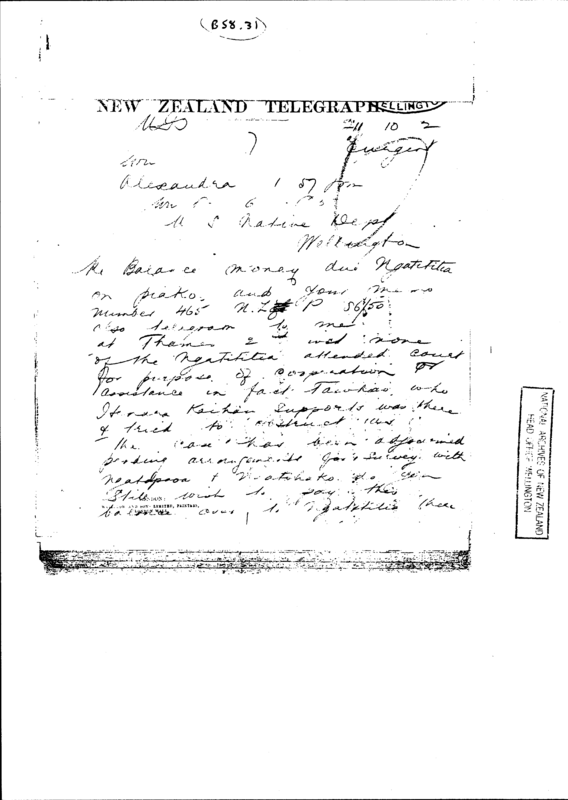 (B58.31)
NEW ZEALAND TELEGRAPH
ELLINGTO
11 10 2
Urgent
Alexandra 1 57 pm
U S Native Dept
Wellington
Re Balance money due Ngatititia
on piako. and your memo
number 465 N.L P 86/50
also telegram to me
at Thames 2 inst none
of the Ngatititia attended court
for purpose of cooperation or
assistance in fact Tawhai who
supports was there
& tried to obstruct us
the case has been adjourned
pending arrangements for survey with
Ngatipaoa & do you
still wish to pay this
balance over to Ngatititia
NATIONAL ARCHIVES OF NEW ZEALAND
HEAD OFFICE WELLINGTON